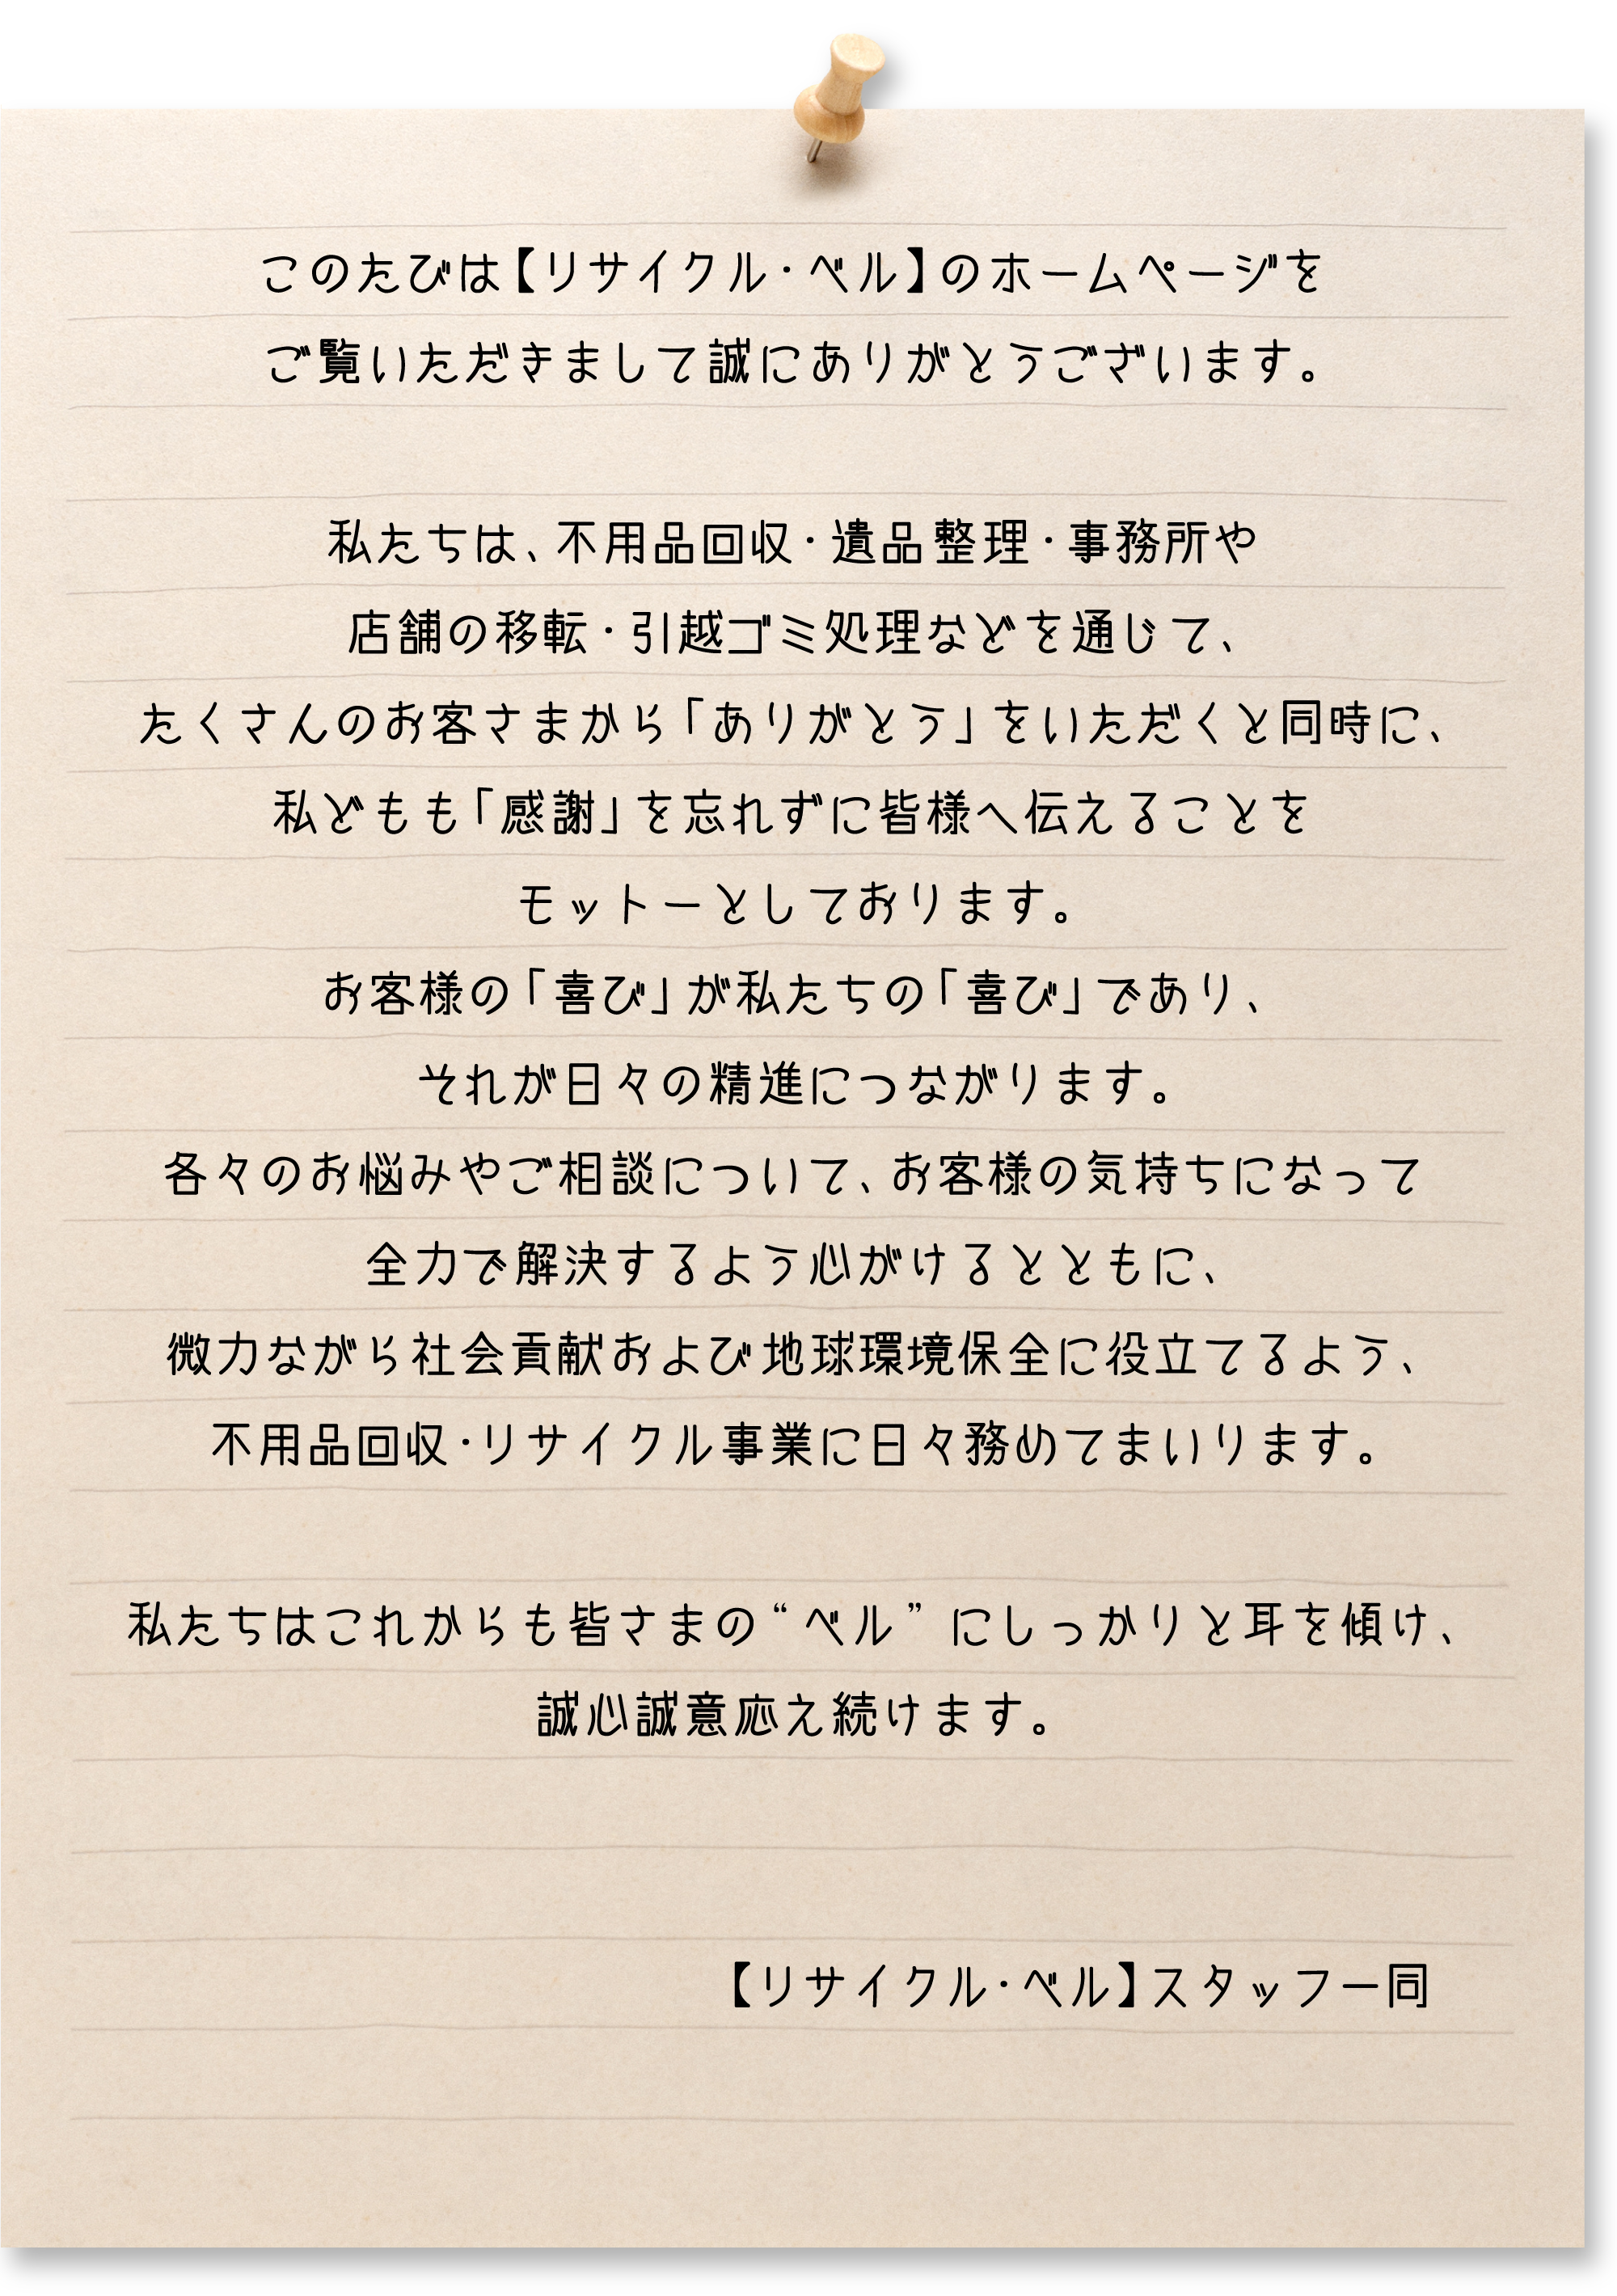 このたびは【リサイクル・ベル】のホームページを
ご覧いただきまして誠にありがとうございます。
私たちは、不用品回収・遺品整理・事務所や
店舗の移転・引越ゴミ処理などを通じて、
たくさんのお客さまから「ありがとう」をいただくと同時に、
私どもも「感謝」を忘れずに皆様へ伝えることを
モットーとしております。
お客様の「喜び」が私たちの「喜び」であり、
それが日々の精進につながります。
各々のお悩みやご相談について、お客様の気持ちになって
全力で解決するよう心がけるとともに、
微力ながら社会貢献および地球環境保全に役立てるよう、
不用品回収・リサイクル事業に日々務めてまいります。
私たちはこれからも皆さまの“ベル”にしっかりと耳を傾け、
誠心誠意応え続けます。
【リサイクル・ベル】スタッフ一同